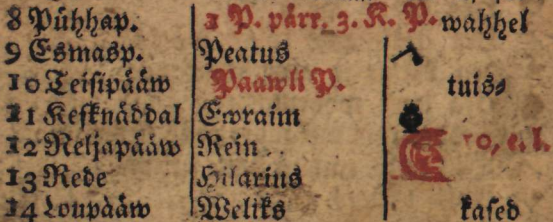 8 Pühhap. 1 P. pärr. 3. K. P. wahhel
9 Esmasp. Peatus
10 Teisipääw Paawli P. tuis⸗
11 Kesknäddal Ewraim
12 Neljapääw Rein 10, e. l.
13 Rede Hilarius
14 Loupääw Weliks kased